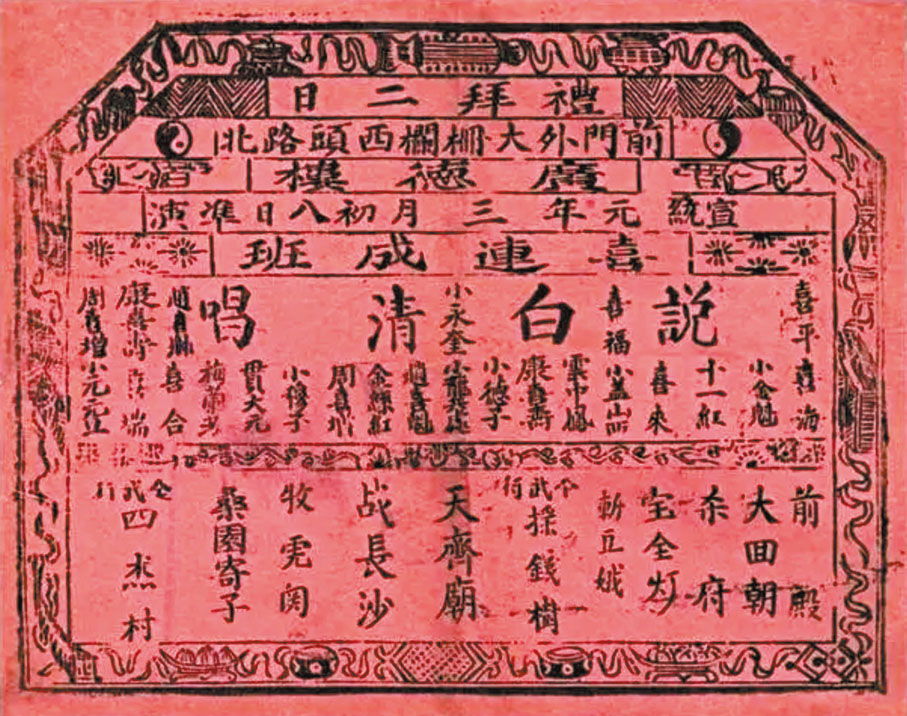 禮拜二日
前門外大柵欄西頭路北
廣德樓
宣統元年三月初八日准演
喜連成班
説白清唱
喜平
喜海
小金魁
十一紅
喜來
喜福
小蓋
雲中鳳
康喜壽
小德子
小永奎
趙喜魁
金絲紅
周喜增
小穆子
貫大元
喜合
康喜壽
喜瑞
周喜增
前殿
大囬朝
杀府
宝全灯
斬豆娥
全武行
採錢樹
天齊廟
战長沙
牧虎関
桑園寄子
全武行
四杰村